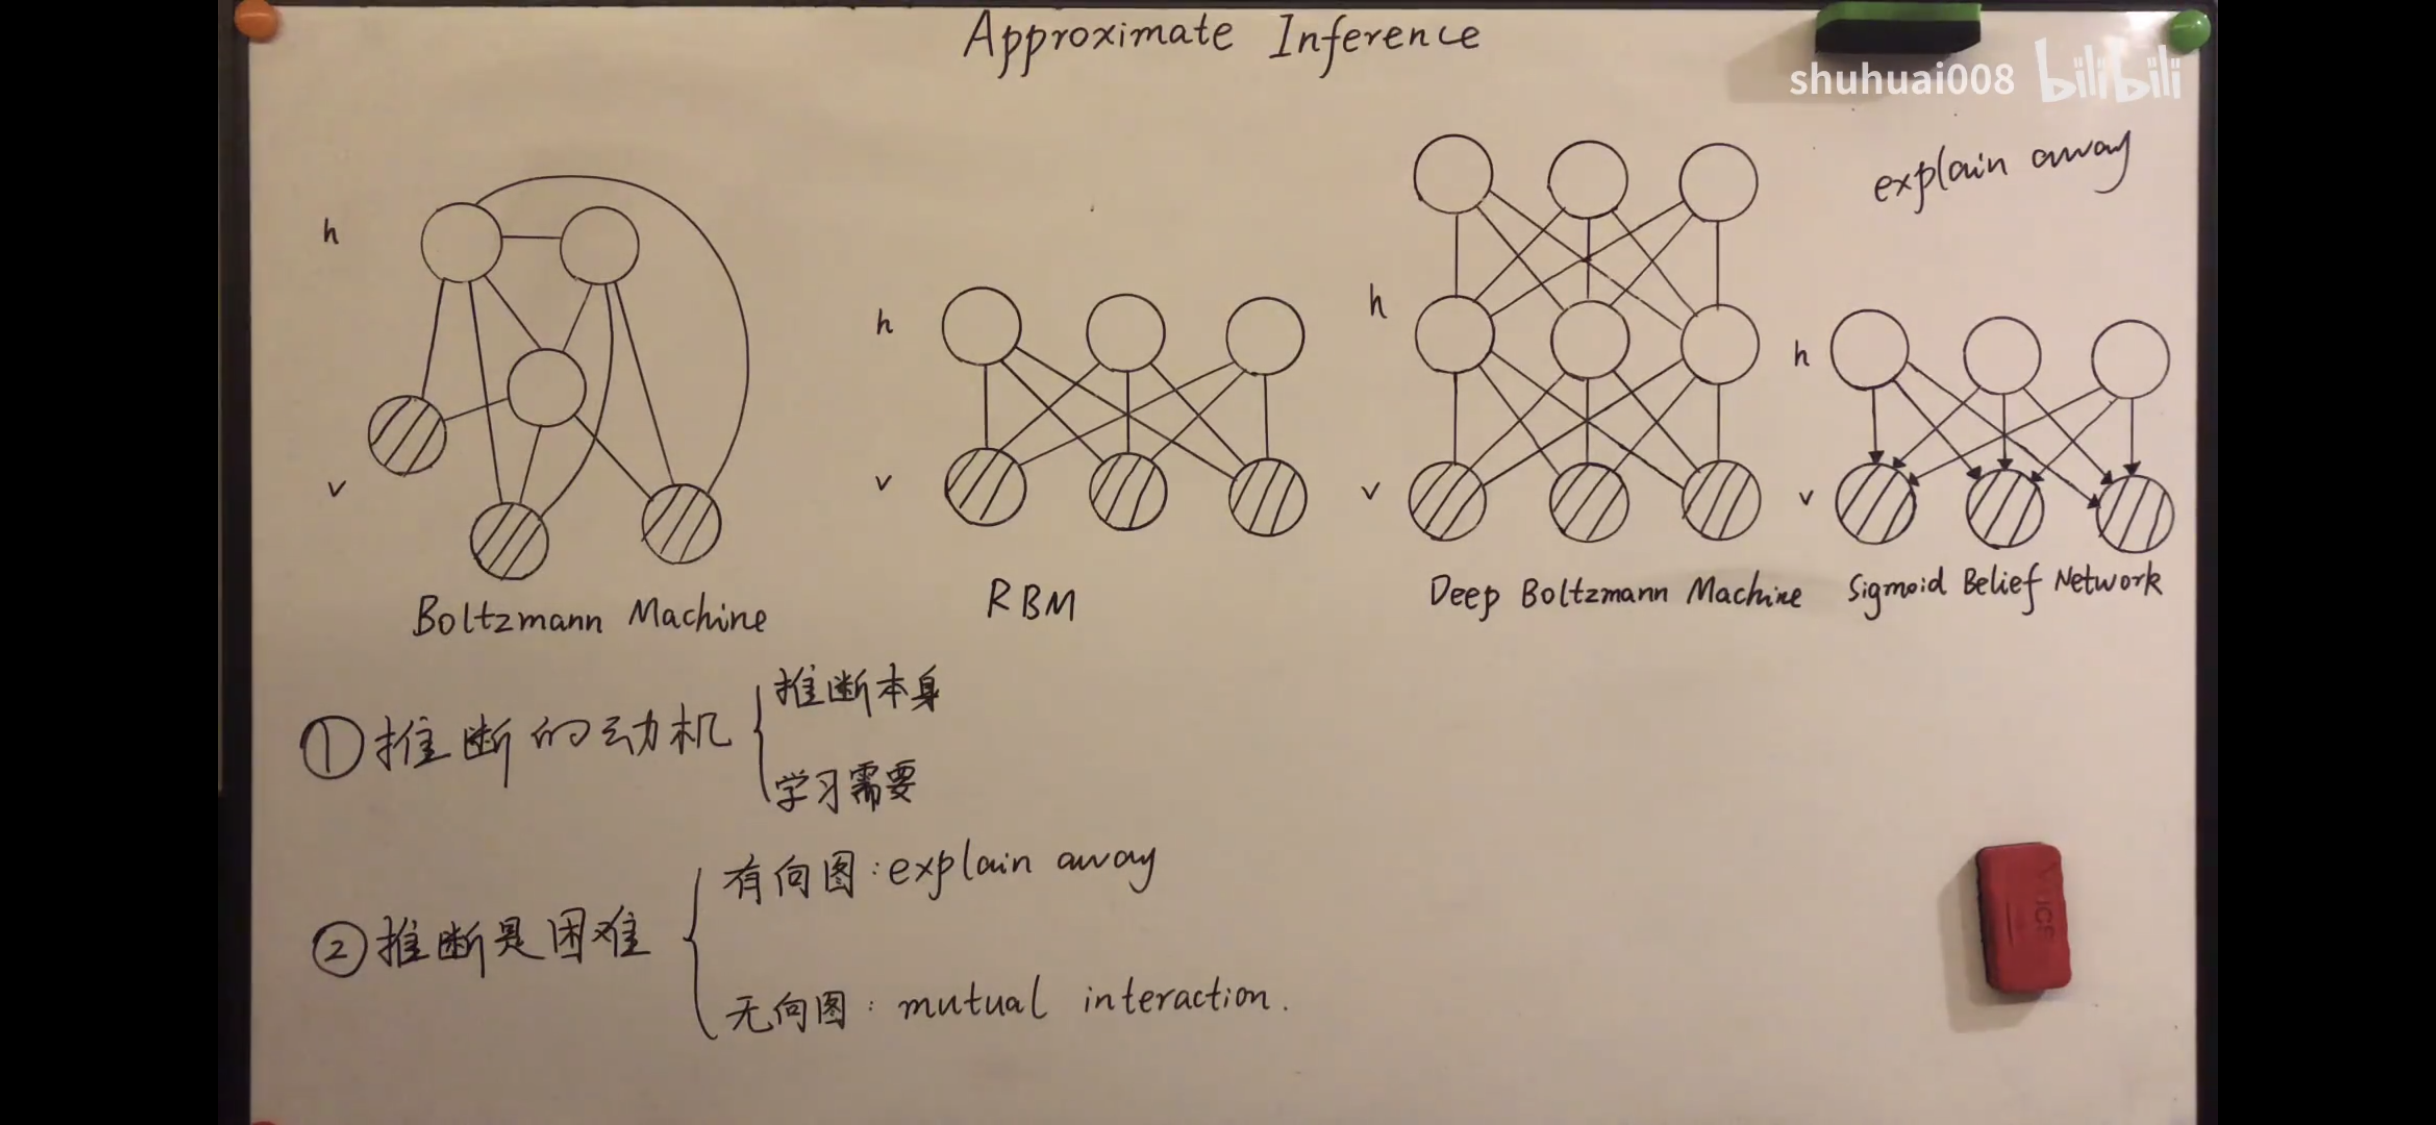 Approximate Inference
shuhuai008 bilibili
explain away
h
v
Boltzmann Machine
h
v
RBM
h
v
Deep Boltzmann Machine
h
v
Sigmoid Belief Network
① 推断的动机
推断本身
学习需要
② 推断是困难
有向图: explain away
无向图: mutual interaction.